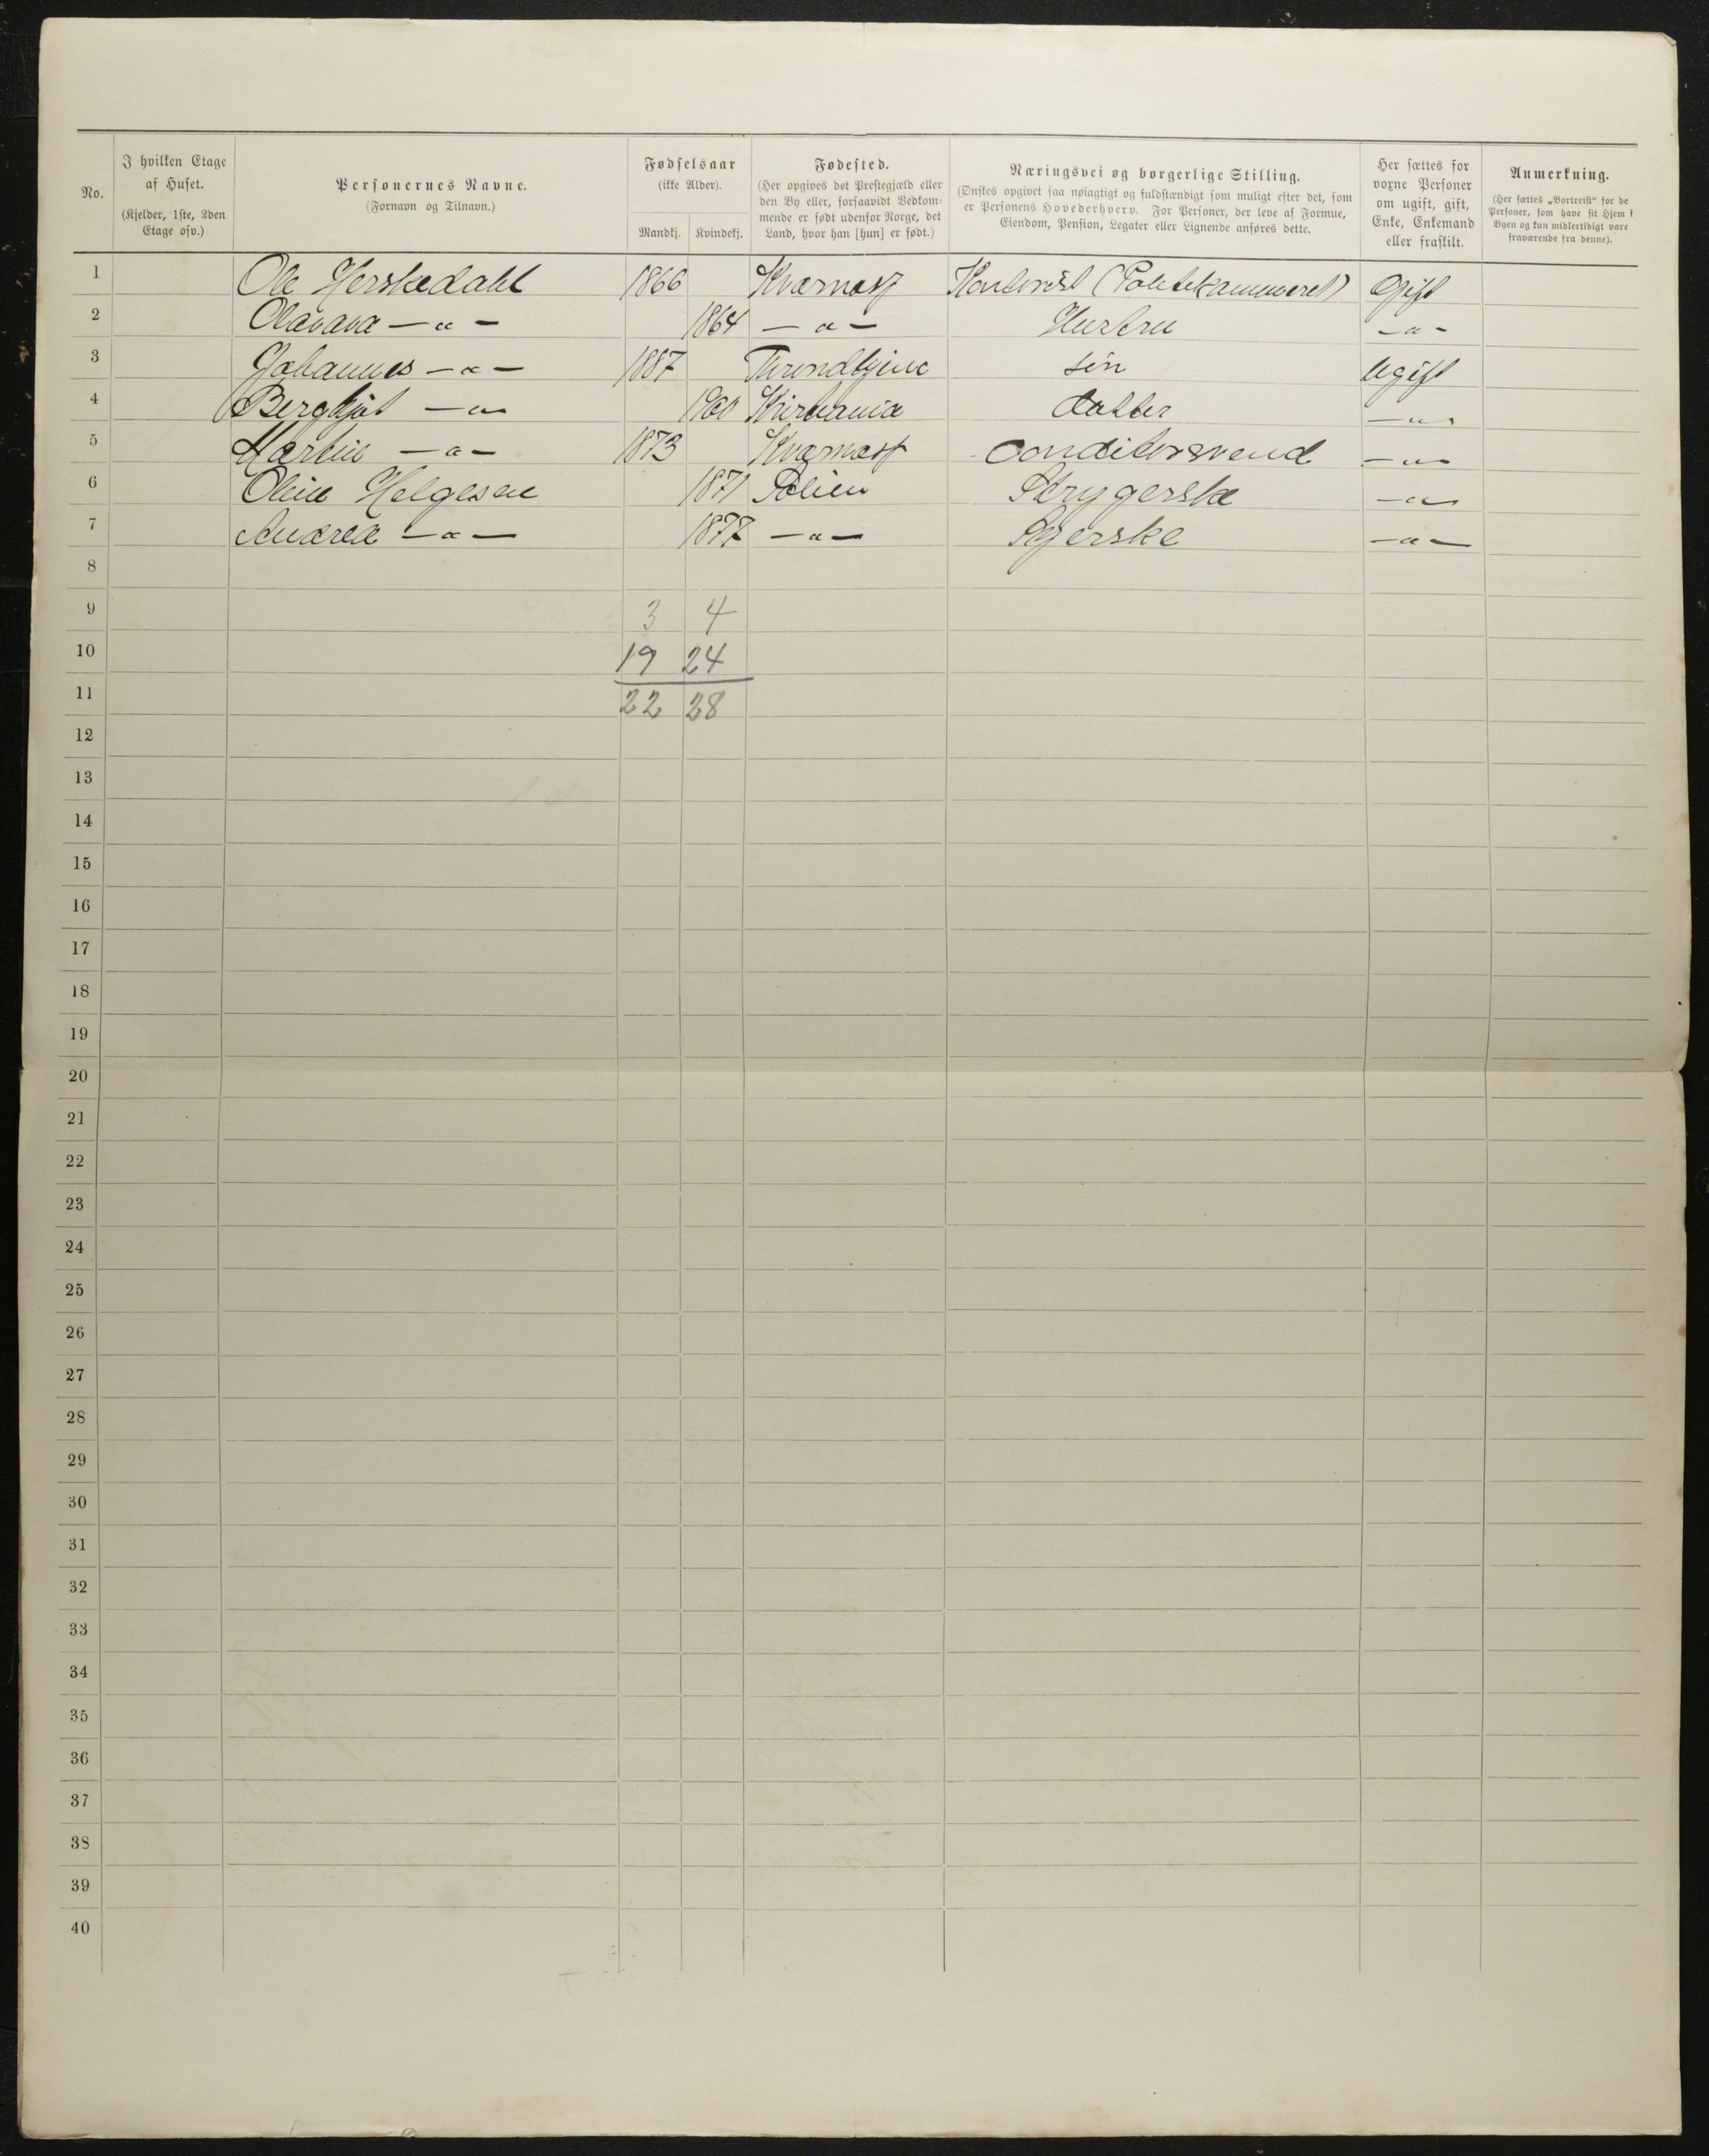 No.
I hvilken Etage af Huset. (Kjelder, 1ste, 2den Etage osv.)
Personernes Navne. (Fornavn og Tilnavn.)
Fødselsaar (ikke Alder). Mandkj. Kvindekj.
Fødested. (Her opgives det Prestegjæld eller den By eller, forsaavidt Vedkommende er født udenfor Norge, det Land, hvor han [hun] er født.)
Næringsvei og borgerlige Stilling. (Ønskes opgivet saa nøiagtigt og fuldstændigt som muligt efter det, som er Personens Hovederhverv. For Personer, der leve af Formue, Eiendom, Pension, Legater eller Lignende anføres dette.)
Her sættes for voxne Personer om ugift, gift, Enke, Enkemand eller fraskilt.
Anmerkning. (Her sættes „Bortreist“ for de Personer, som have sit Hjem i Byen og kun midlertidigt vare fraværende fra denne).
1 Ole Herskedahl 1866 Kværnæs Kontorist (Politikammeret) Gift
2 Olavava —"— 1864 —"— Hustru —"—
3 Johannes —"— 1887 Throndhjem Søn Ugift
4 Berghljot —"— 1900 Kristiania Datter —"—
5 Martin —"— 1873 Kværnæs Conditorsvend —"—
6 Oline Helgesen 1871 Strygerske —"—
7 Andrea —"— 1877 —"— Syerske —"—
8
9 3 4
10 19 24
11 22 28
12
13
14
15
16
17
18
19
20
21
22
23
24
25
26
27
28
29
30
31
32
33
34
35
36
37
38
39
40